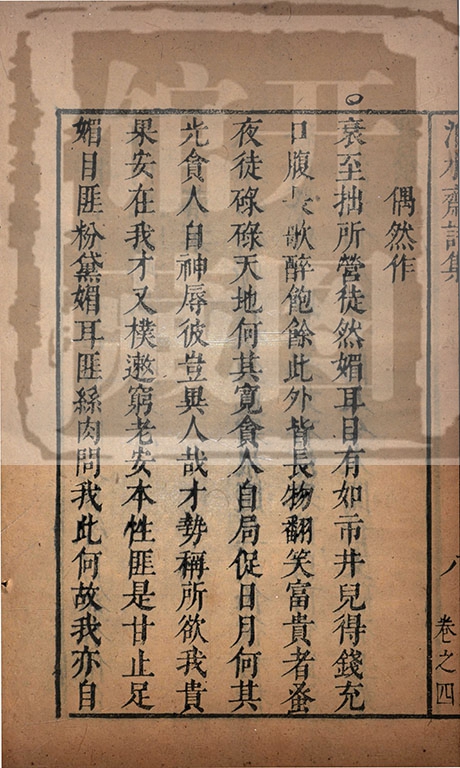 水齋詩集 卷之四
偶然作
衰至拙所營徒然媚耳目有如市井兒得錢充
口腹歌醉飽餘此外皆長物翻笑富貴者蚤
夜徒碌碌天地何其寬貪人自局促日月何其
光貪人自神辱彼豈異人哉才勢稱所欲我貴
果安在我才又樸遬窮老安本性匪是甘止足
媚目匪粉黛媚耳匪絲肉問我此何故我亦自